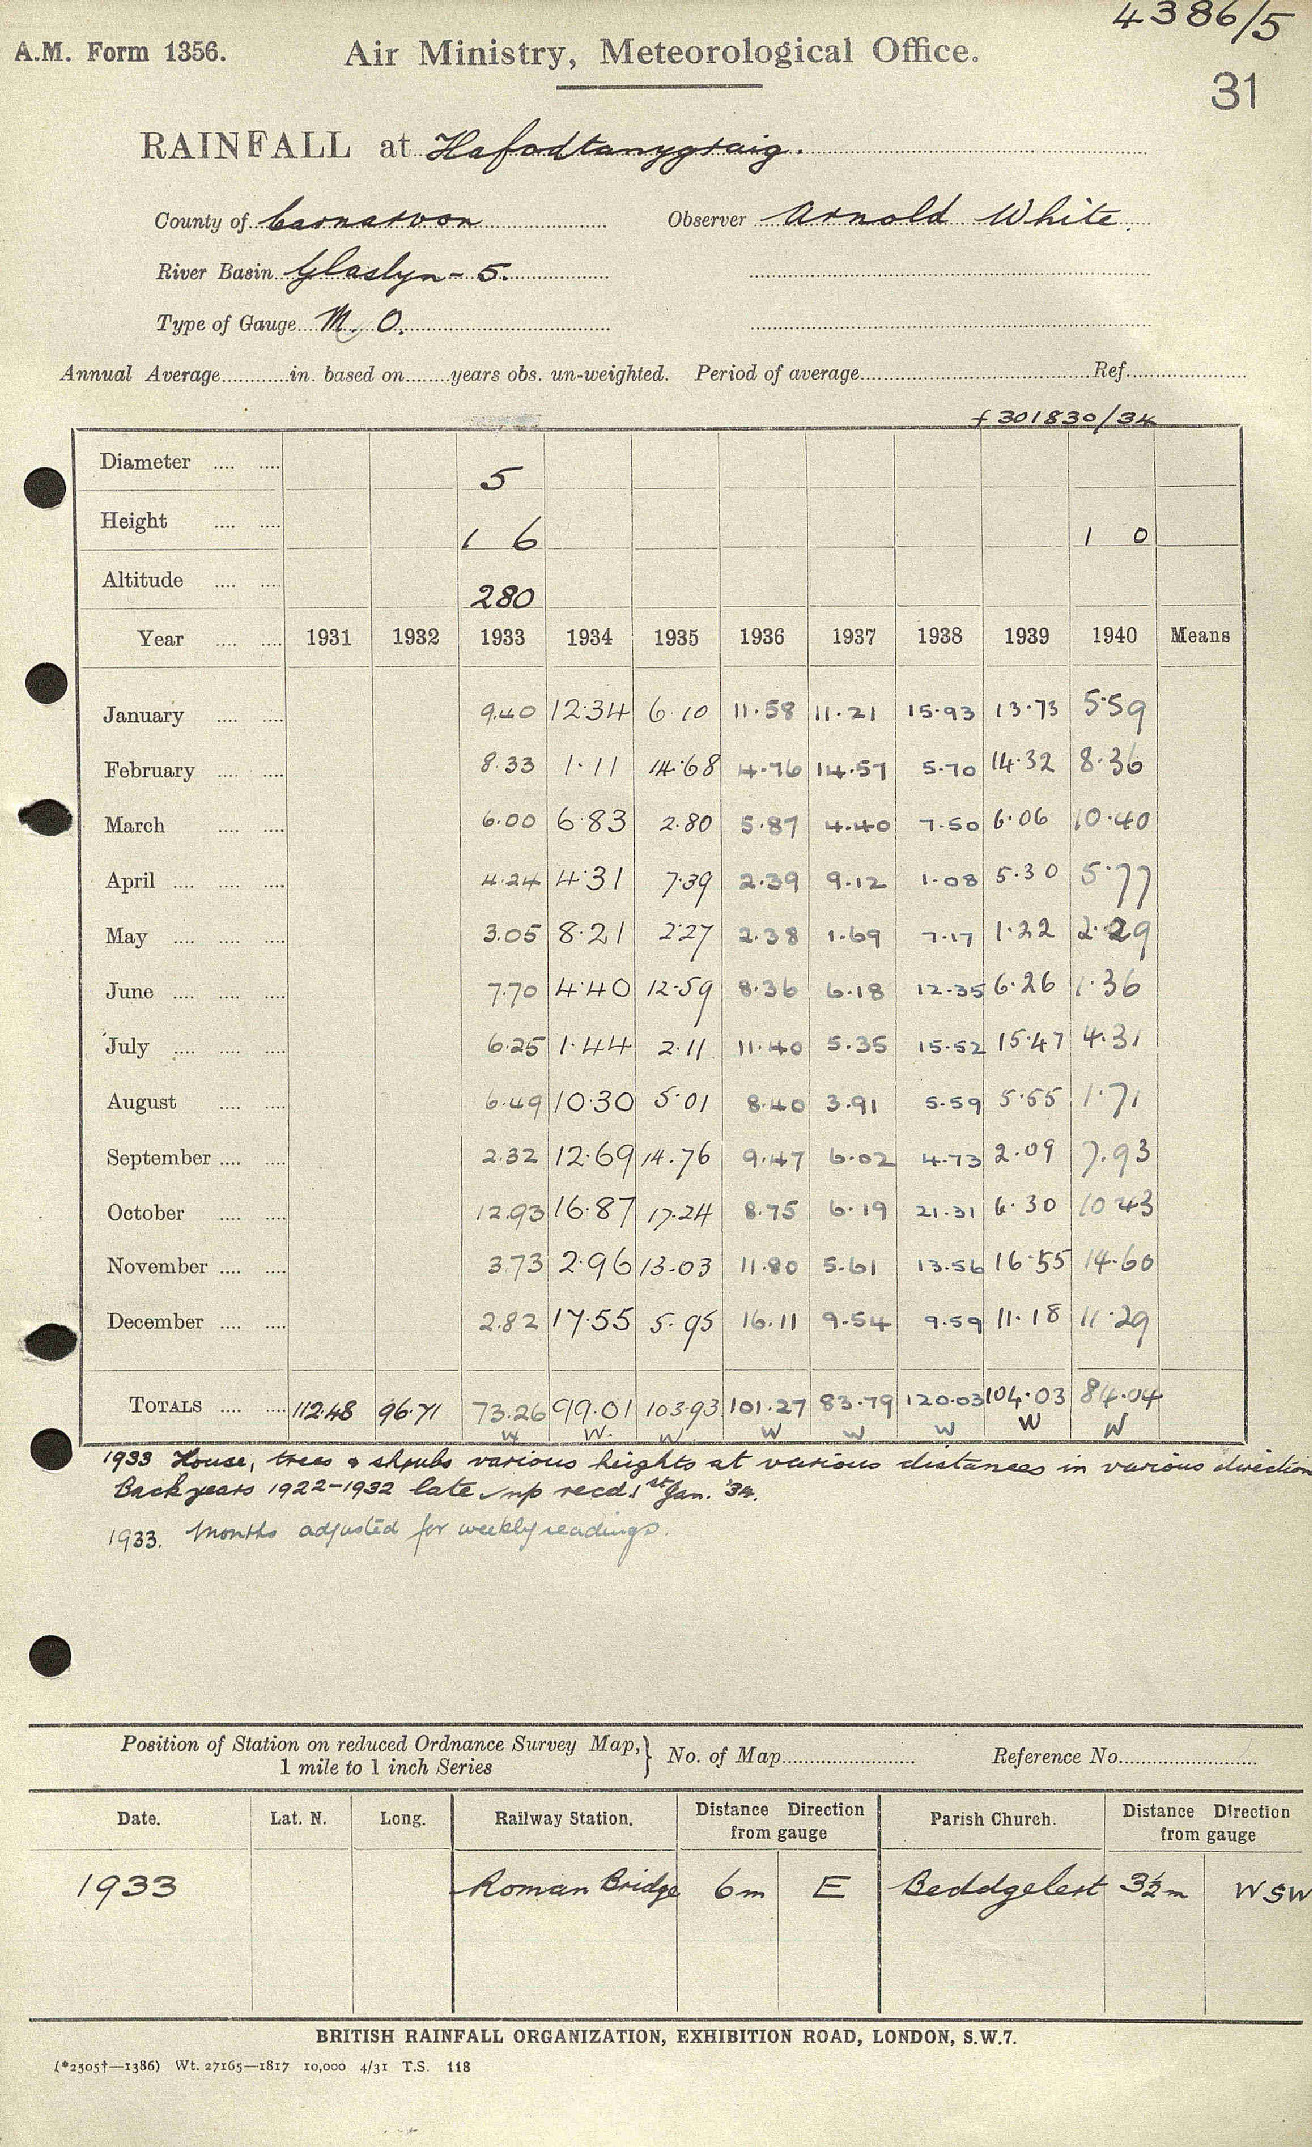 4386/5
A.M. Form 1356. Air Ministry, Meteorological Office.
31
RAINFALL at Hafodtanygraig.
County of Carnarvon Observer Arnold White.
River Basin Glaslyn - 5.
Type of Gauge M. O.
Annual Average in. based on years obs. un-weighted. Period of average Ref.
f 301830/34
Diameter 5
Height 1 6 1 0
Altitude 280
Year 1931 1932 1933 1934 1935 1936 1937 1938 1939 1940 Means
January 9.40 12.34 6.10 11.58 11.21 15.93 13.73 5.59
February 8.33 1.11 14.68 4.76 14.57 5.70 14.32 8.36
March 6.00 6.83 2.80 5.87 4.40 7.50 6.06 10.40
April 4.24 4.31 7.39 2.39 9.12 1.08 5.30 5.77
May 3.05 8.21 2.27 2.38 1.69 7.17 1.22 2.29
June 7.70 4.40 12.59 8.36 6.18 12.35 6.26 1.36
July 6.25 1.44 2.11 11.40 5.35 15.52 15.47 4.31
August 6.49 10.30 5.01 8.40 3.91 5.59 5.55 1.71
September 2.32 12.69 14.76 9.47 6.02 4.73 2.09 7.93
October 12.93 16.87 17.24 8.75 6.19 21.31 6.30 10.43
November 3.73 2.96 13.03 11.80 5.61 13.56 16.55 14.60
December 2.82 17.55 5.95 16.11 9.54 9.59 11.18 11.29
TOTALS 112.48 96.71 73.26 99.01 103.93 101.27 83.79 120.03 104.03 84.04
W W W W W W W W
1933 House, trees & shrubs various heights at various distances in various direction
Back years 1922-1932 late recd. 1st Jan. '34.
1933. Months adjusted for weekly readings.
Position of Station on reduced Ordnance Survey Map, 1 mile to 1 inch Series } No. of Map Reference No.
Date. Lat. N. Long. Railway Station. Distance Direction from gauge Parish Church. Distance Direction from gauge
1933 Roman Bridge 6m E Beddgelert 3½m WSW
BRITISH RAINFALL ORGANIZATION, EXHIBITION ROAD, LONDON, S.W.7.
(*2505†—1386) Wt. 27165—1817 10,000 4/31 T.S. 118